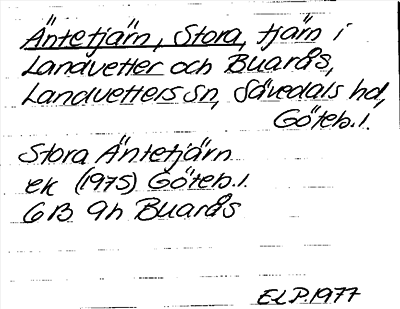 Äntetjärn, Stora, tjärn i
Landvetter och Buarås,
Landvetters sn, Sävedals hd,
Göteb. l.
Stora Äntetjärn
ek (1975) Göteb. l.
6B 9h Buarås
ELP.1977